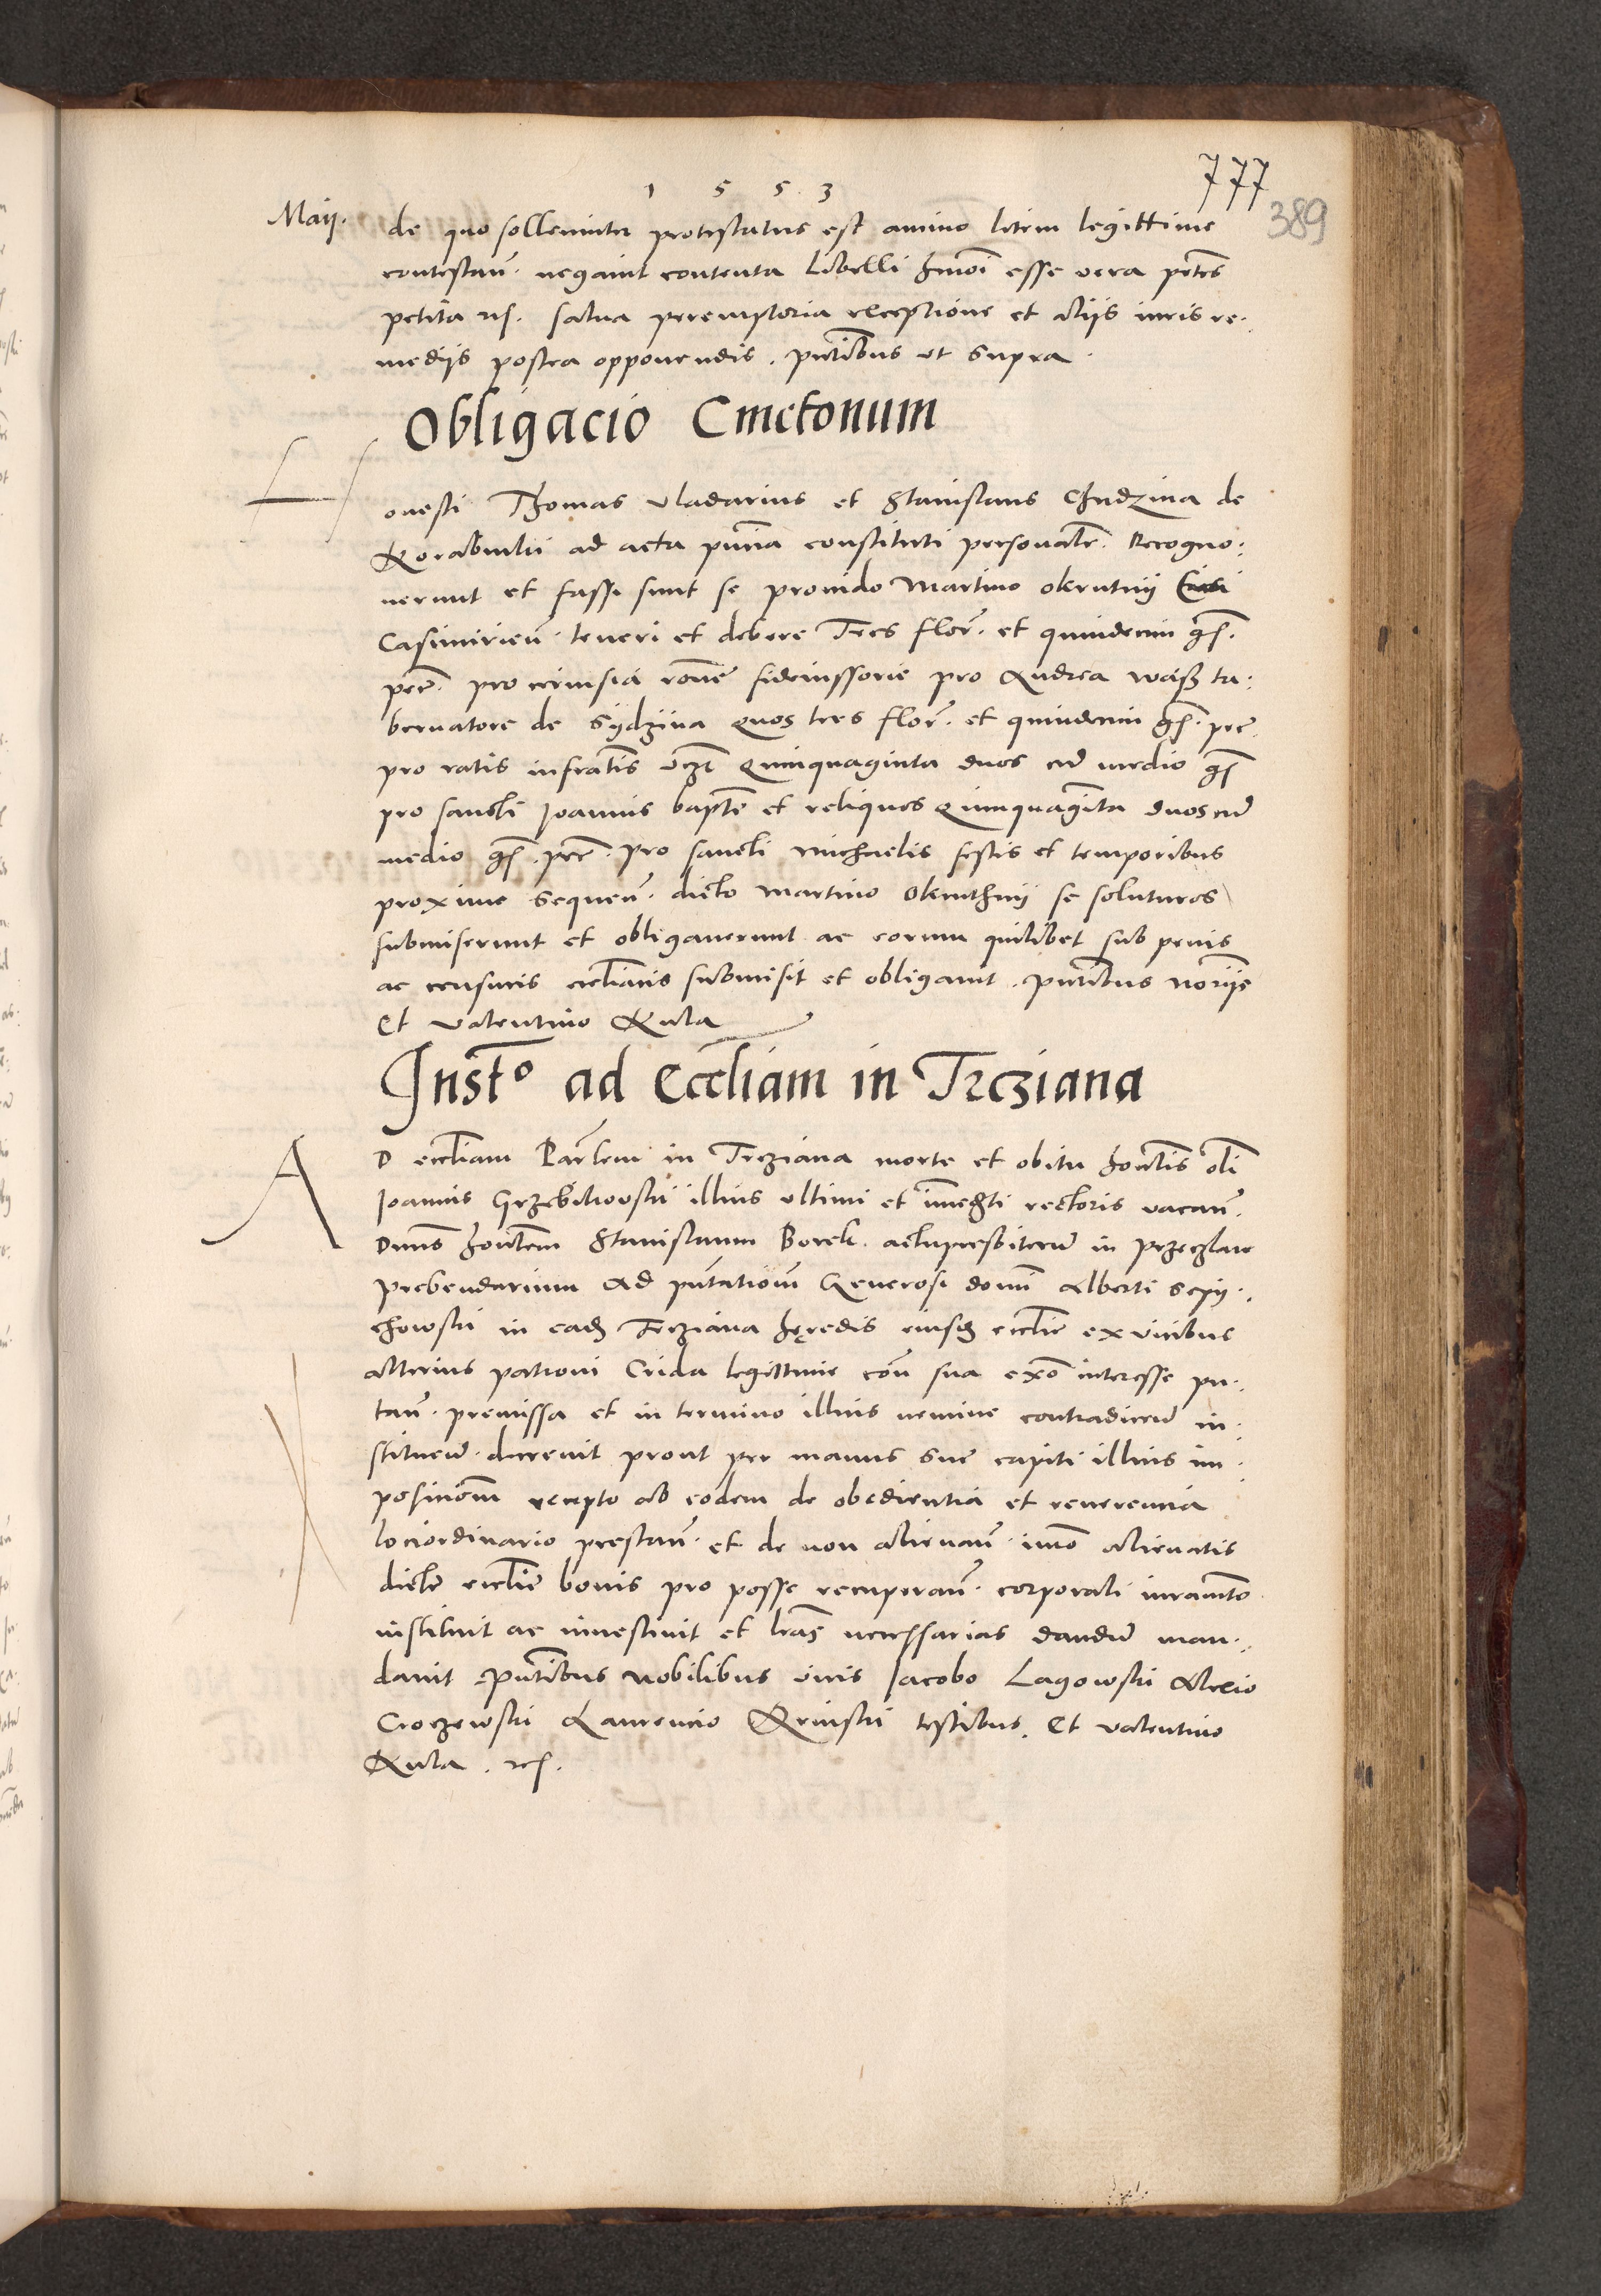 1 5 5 3
777
389
Maij.
de quo sollenniter protestatus est animo litem legittime
contestan̄. negavit contenta Libelli hmōi esse vera petēs
petita rc̄. salva peremptoria exceptione et aliis iuris re-
mediis postea opponendis. pn̄tibus ut supra.
Obligacio Cmetonum
Honesti Thomas vladarius et Stanislaus Chudzina de
Korabniki ad acta pn̄cia constituti personalr̄. Recogno:
verunt et fassi sunt se provido Martino okrutny
Casimirien̄. teneri et debere Tres flor̄. et quindecim gs̄.
pec̄. pro cervisia rōne fideiussorie pro Andrea wass ta:
bernatore de Sydzina Quos tres flor̄. et quindecim gs̄. pec̄
pro ratis infratis vcz̄ Quinquaginta duos cū medio gs̄
pro sancti Joannis bapte et reliquos Quinquaginta duos cū
medio gs̄. pec̄. pro sancti Michaelis festis et temporibus
proxime sequen̄. dicto Martino Okruthny se soluturos
submiserunt et obligaverunt ac eorum quilibet sub penis
ac censuris ecc̄liacis submisit et obligavit. pn̄tibus noriis
Et Valentino Kula
Instō ad Eccl̄iam in Trcziana
AD eccl̄iam Parlem in Trcziana morte et obitu honl̄is olī
Joannis Grzebikowski illius ultimi et immedti rectoris vacan̄.
Dnūs honl̄em Stanislaum Borek. actu presbiterū in Przeczlaw
prebendarium Ad pn̄tationem Generosi domī Alberti Sepy-
chowski in eadē Trcziana hęredis eiusdē ecclīe ex vicibus
alterius patroni Crida legittime con̄ sua exō interesse pu-
tan̄. premissa et in termino illius nemine contradicen̄ in-
stituen̄. decrevit prout per manus sue capiti illius im-
positionem recepto ab eodem de obedientia et reverencia
loci ordinario prestan̄. et de non alienan̄. immo alienatis
dicte ecclīe bonis pro posse recuperan̄. corporali iuramto
instituit ac investivit et lr̄as necessarias dandū man-
davit Pn̄tibus Nobilibus viris Jacobo Lagowski Alexio
Croczewski Laurencio Krinski testibus. Et Valentino
Kula. rc̄.